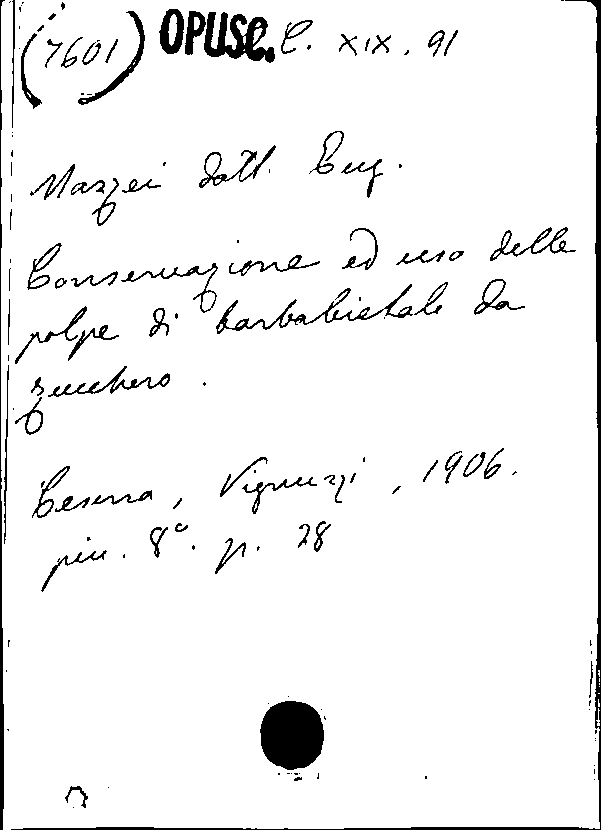 (7601) OPUSC. C. XIX. 91
Mazzei dott. Eug.
Conservazione ed uso delle
polpe di barbabietole da
zucchero.
Cesena, Vignuzzi, 1906.
picc. 8°. p. 28